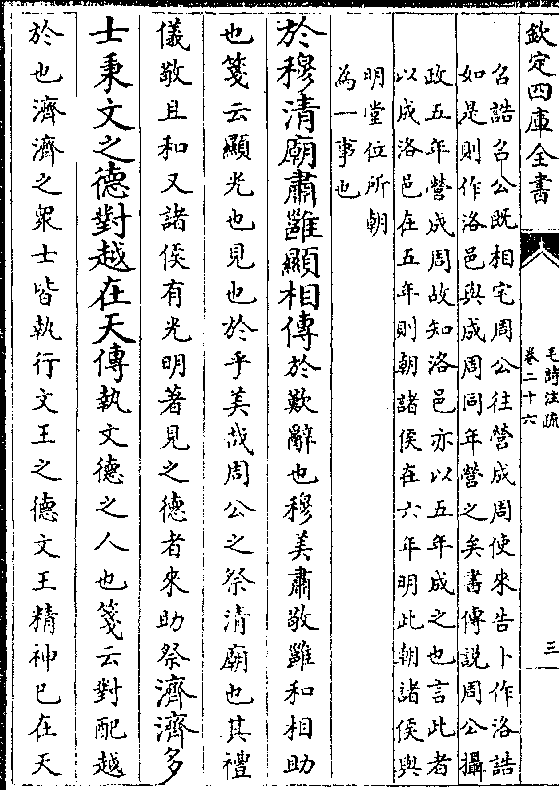 欽定四庫全書
毛詩注疏
卷二十六
三
召誥召公既相宅周公往營成周使來告卜作洛誥
如是則作洛邑與成周同年營之矣書傳説周公攝
政五年營成周故知洛邑亦以五年成之也言此者
以成洛邑在五年則朝諸侯在六年明此朝諸侯與
明堂位所朝
為一事也
於穆清廟肅雝顯相傳於歎辭也穆美肅敬雝和相助
也箋云顯光也見也於乎美哉周公之祭清廟也其禮
儀敬且和又諸侯有光明著見之德者來助祭濟濟多
士秉文之德對越在天傳執文德之人也箋云對配越
於也濟濟之衆士皆執行文王之德文王精神已在天